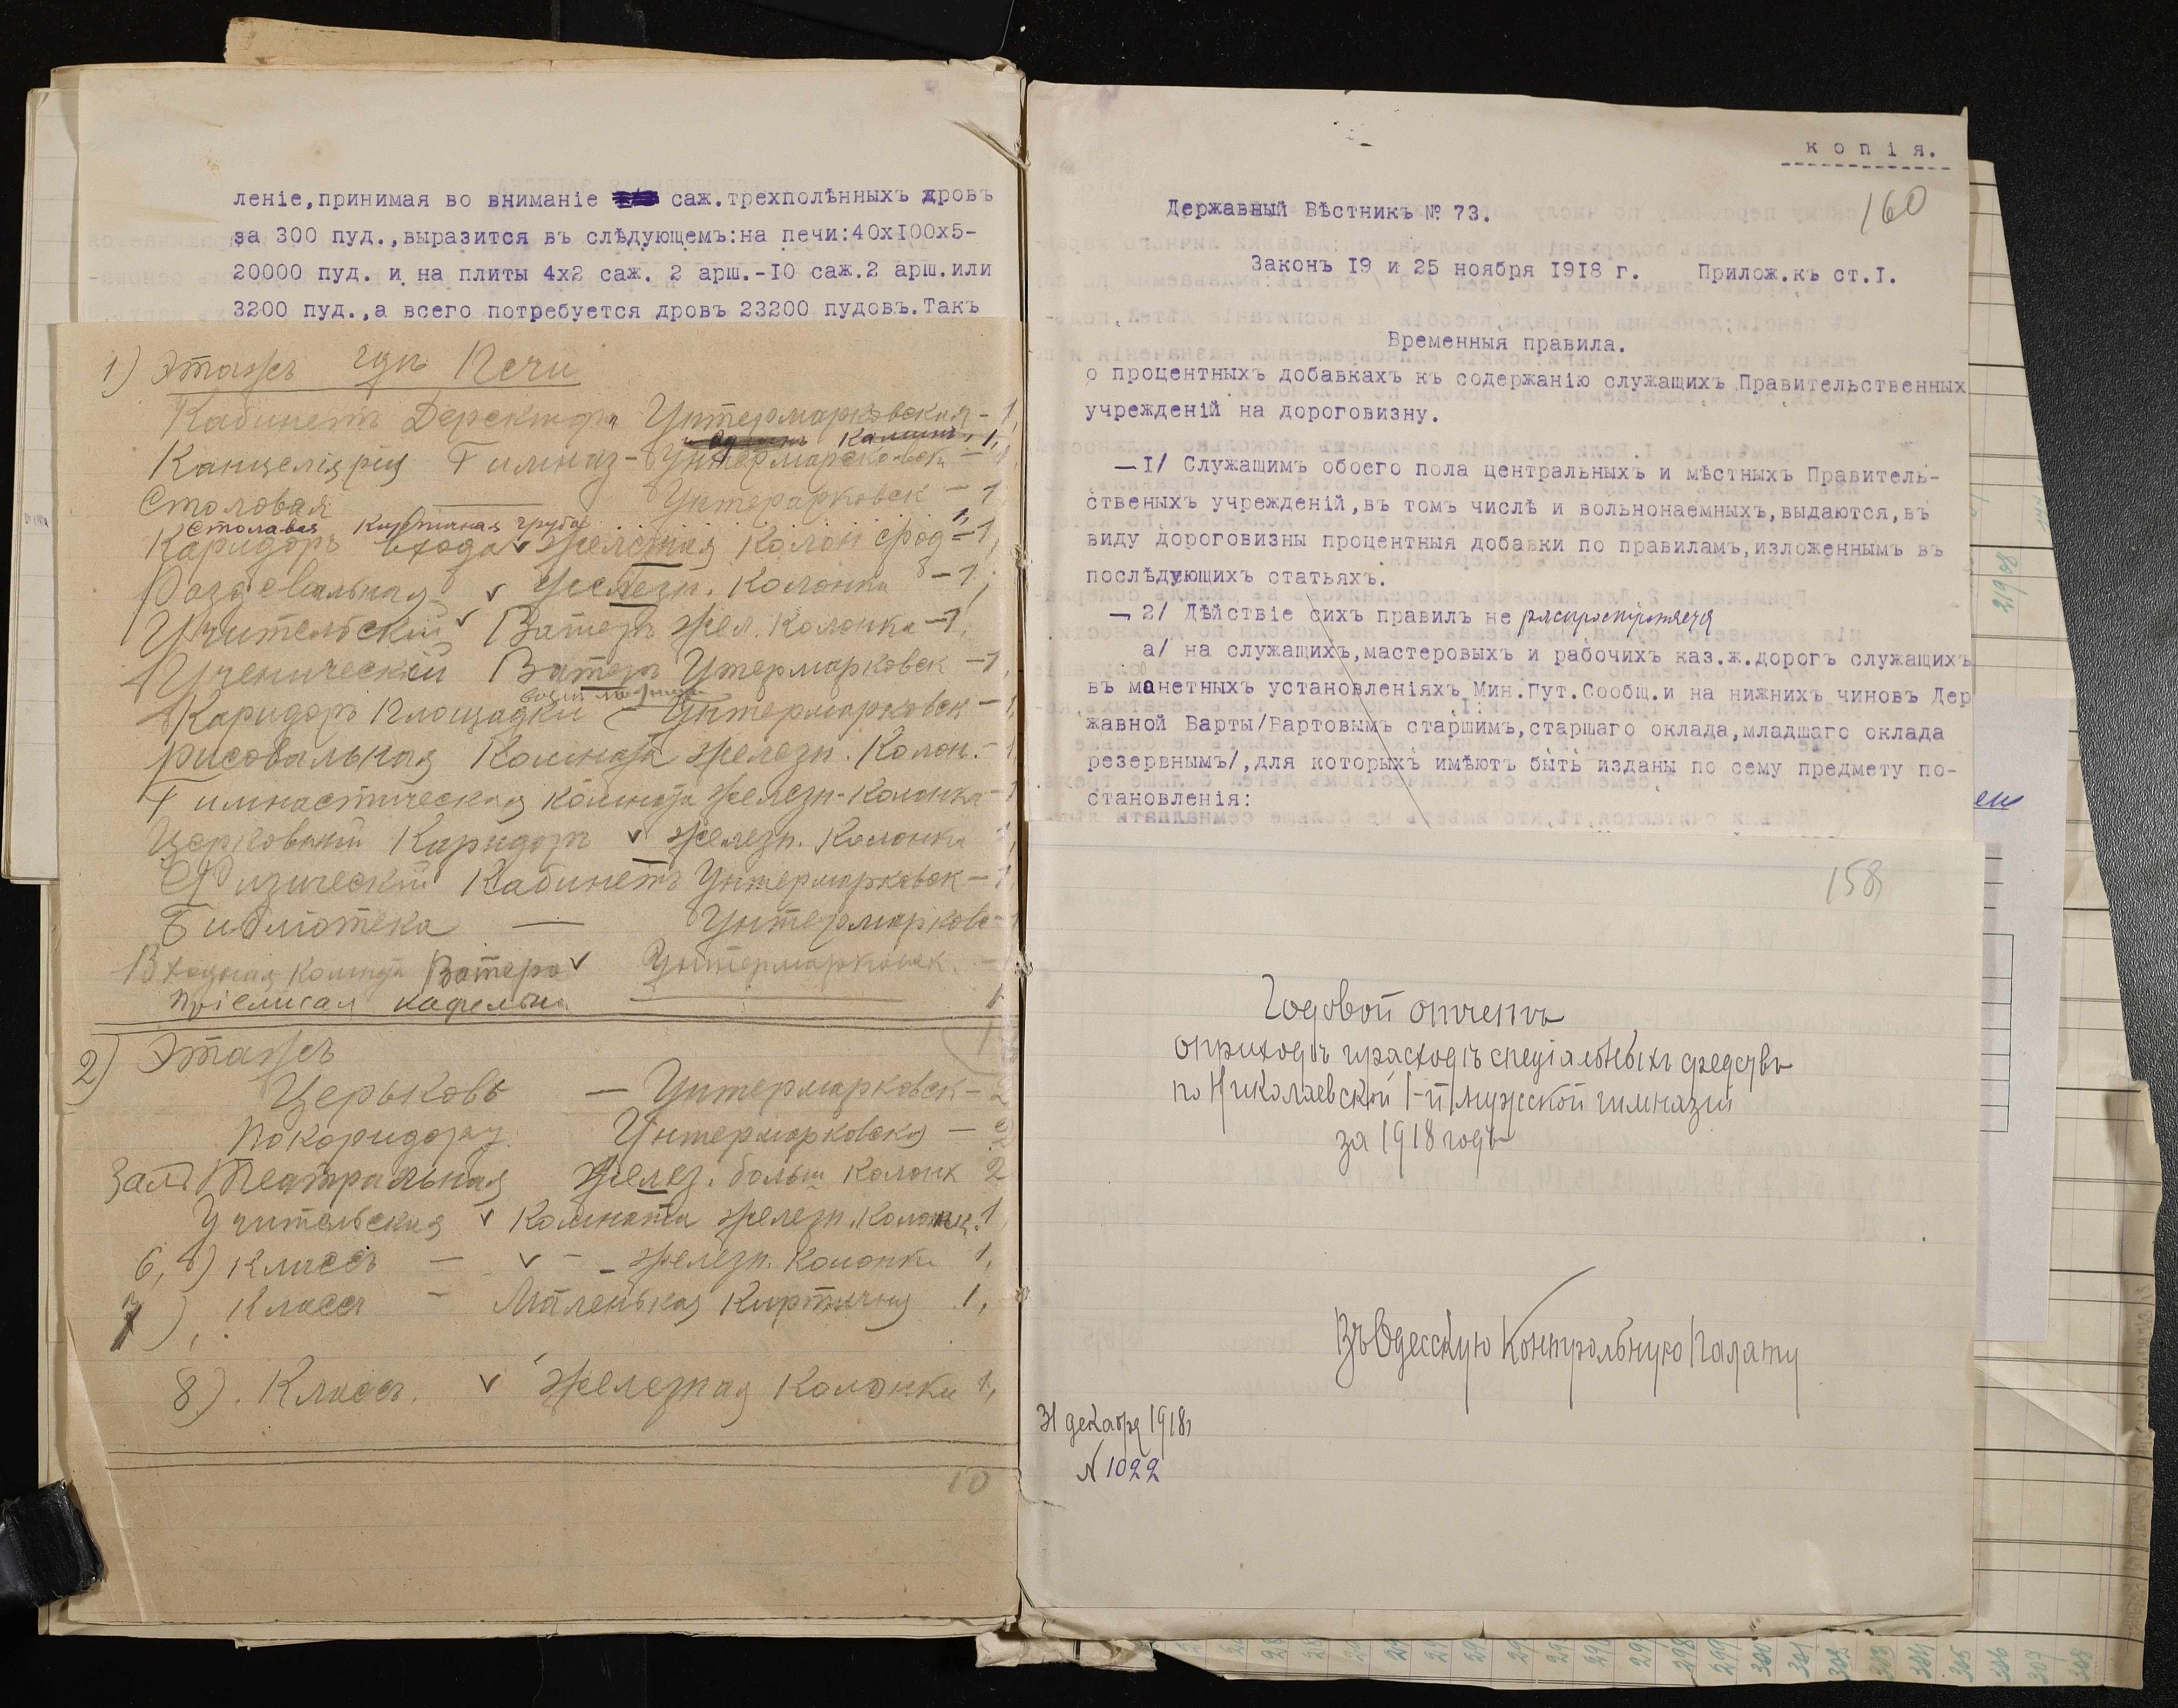 леніе,принимая во вниманіе саж.трехполѣнныхъ дровъ
за 300 пуд.,выразится въ слѣдующемъ:на печи:40х100х5-
20000 пуд. и на плиты 4х2 саж. 2 арш.-10 саж.2 арш.или
3200 пуд.,а всего потребуется дровъ 23200 пудовъ.Такъ
1) Этажъ гдѣ Печи
Кабинетъ Деректора Унтермарковская - 1,
Канцелярия Гимназ- Унтермарковск -
Столовая — Унтерарковск - 1
Столавая Кирпичная груба 1,
Каридоръ Входа v желѣзная Колон - 1,
Раздевальная v Железн. Колонка - 1,
Учительский v Ватеръ жел. Колонка - 1,
Ученический Ватеръ Унтермарковск - 1,
Каридоръ Площадки Унтермарковск - 1,
рисовальная Комната железн. Колон. - 1,
Гимнастическая комната железн-колонка - 1
Церковный Каридоръ v железн. Колонка
Физический Кабинетъ Унтермарковск - 1,
Библиотека — Унтермарковс - 1
Входная комната Ватера v Унтермарковск. -
Пріемная кафельн. — 1
2) Этажъ
Церьковь — Унтермарковск - 2
По коридору Унтермарковска - 2
Залъ Театральная Желез. больш Колонк 2
Учительская v Комната железн. Колонка. 1,
6,) Классъ - v - - железн. Колонка 1,
7), Классъ - Маленькая Кирпичная 1,
8). Классъ. v Железная Колонка 1,
10
копія.
160
Державный Вѣстникъ № 73.
Законъ 19 и 25 ноября 1918 г. Прилож.къ ст.I.
Временныя правила.
о процентныхъ добавкахъ къ содержанію служащихъ Правительственных
учрежденій на дороговизну.
— I/ Служащимъ обоего пола центральныхъ и мѣстныхъ Правитель-
ственыхъ учрежденій,въ томъ числѣ и вольнонаемныхъ,выдаются,въ
виду дороговизны процентныя добавки по правиламъ,изложеннымъ въ
послѣдующихъ статьяхъ.
— 2/ Дѣйствіе сихъ правилъ не распространяется
а/ на служащихъ,мастеровыхъ и рабочихъ каз.ж.дорогъ служащихъ
въ манетныхъ установленіяхъ Мин.Пут.Сообщ.и на нижнихъ чиновъ Дер
жавной Варты/Вартовымъ старшимъ,старшаго оклада,младшаго оклада
резервнымъ/,для которыхъ имѣютъ быть изданы по сему предмету по-
становленія:
158
Годовой отчетъ
о приходѣ и расходѣ спеціальныхъ средствъ
по Николаевской 1-й мужской гимназіи
за 1918 годъ
Въ Одесскую Контрольную Палату
31 декабря 1918
N 1022
219 08
299
300
301
302
303
304
305
306
307
308